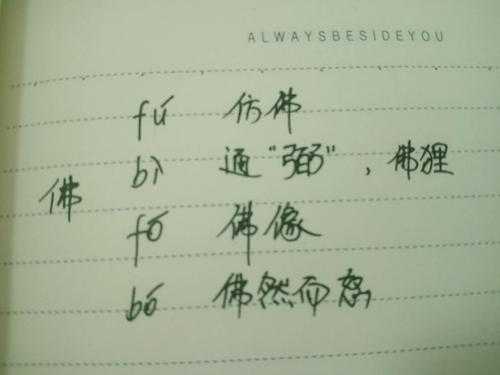 ALWAYSBESIDEYOU
fú 仿佛
bì 通“弼”，佛狸
佛
fó 佛像
bó 佛然而怒